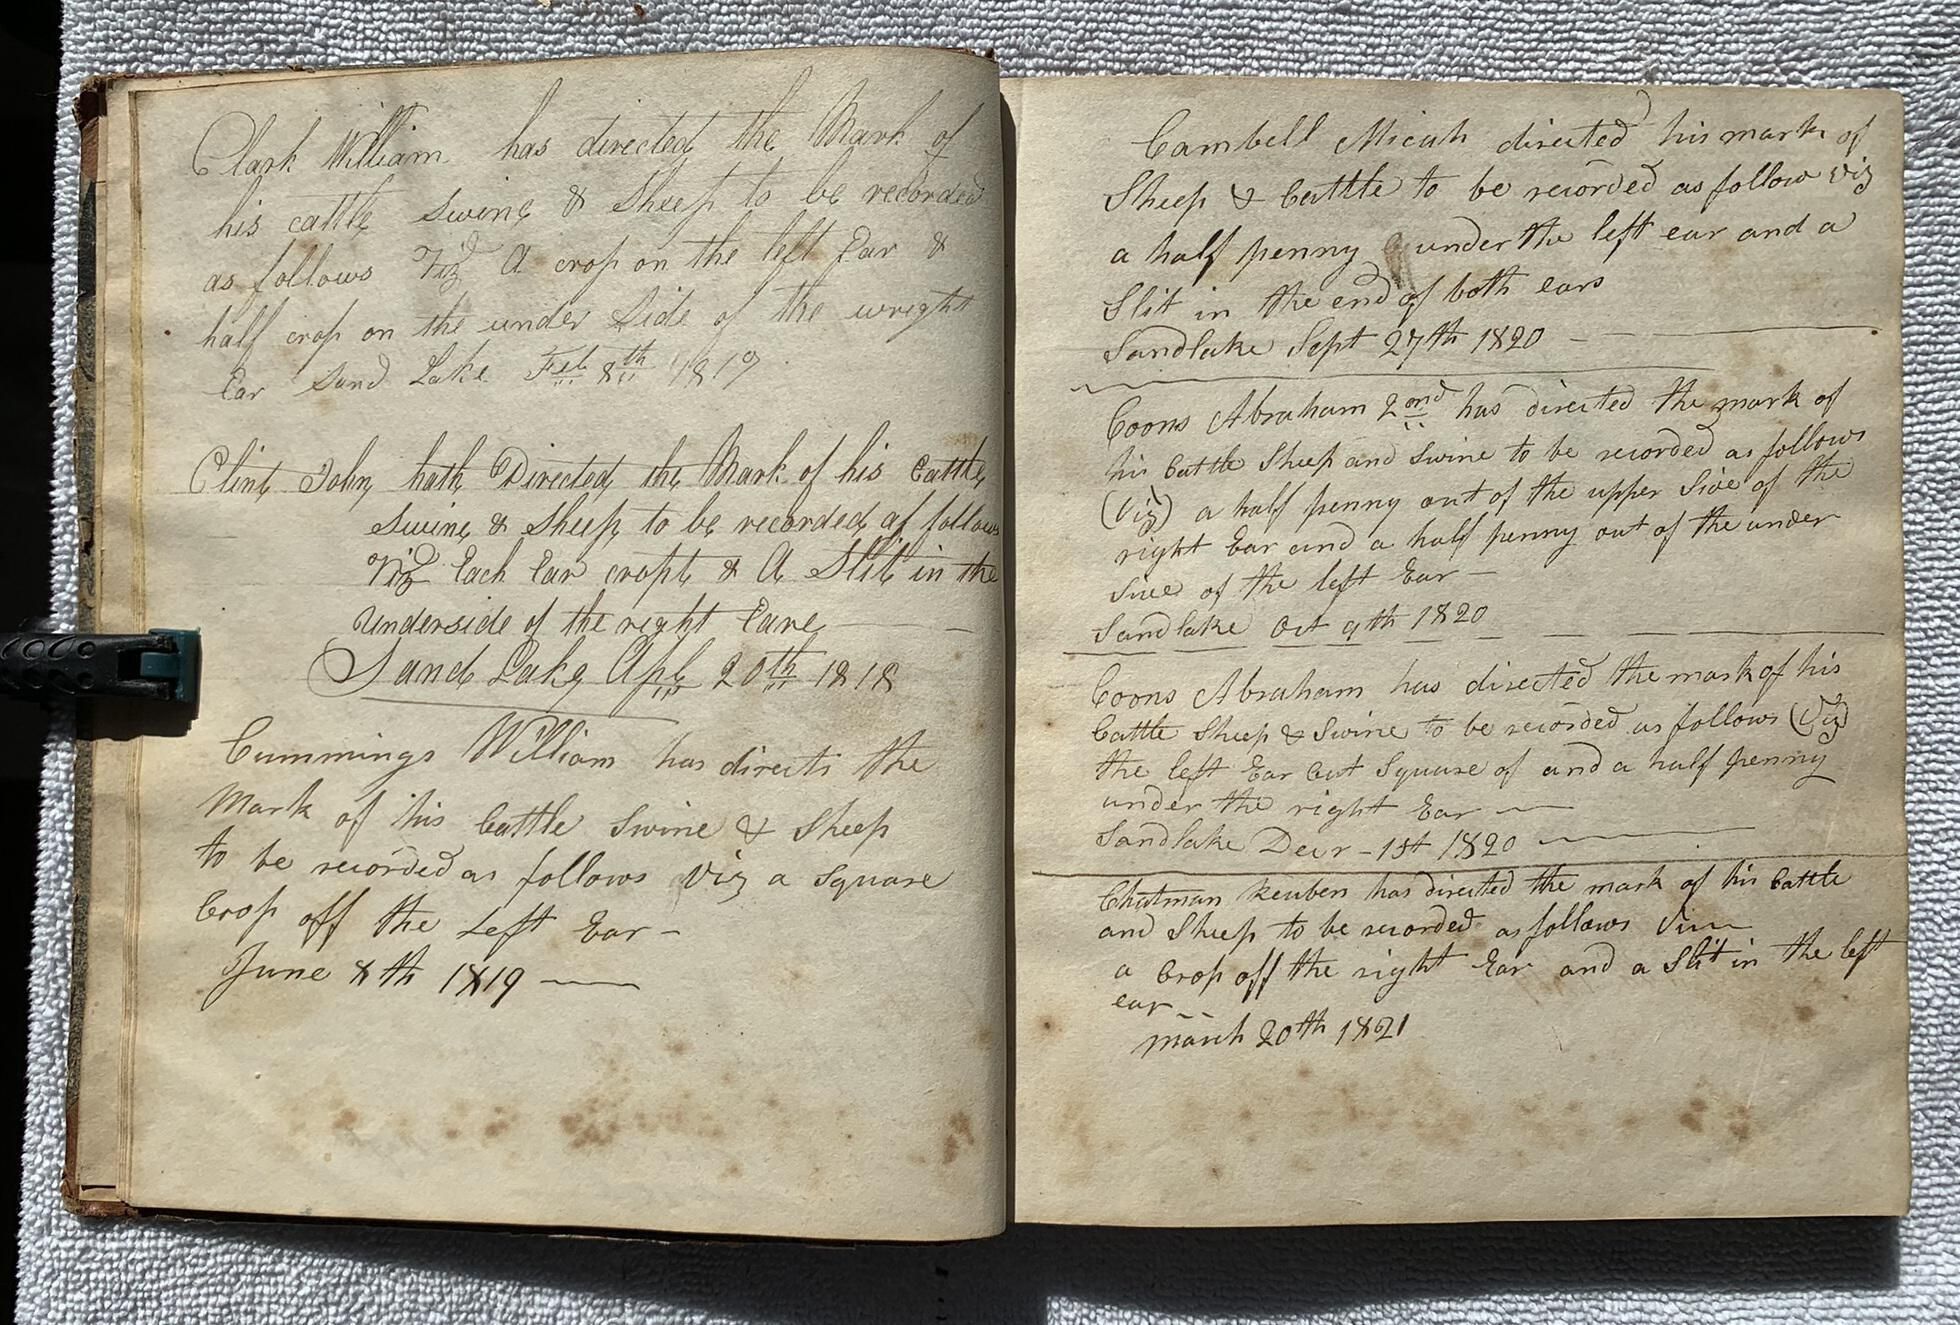 Clark William has directed the Mark of
his cattle swine & Sheep to be recorded
as follows Viz A crop on the left Ear &
half crop on the under Side of the wright
Ear Sand Lake Feb 8th 1819.
Clint John hath Directed the Mark of his Cattle
Swine & Sheep to be recorded as follows
Viz Each Ear cropt & A Slit in the
Underside of the right Eare
Sand Lake Apl 20th 1818
Cummings William has directs the
Mark of his Cattle Swine & Sheep
to be recorded as follows Viz a Square
Crop off the Left Ear -
June 8th 1819
Cambell Micah directed his mark of
Sheep & Cattle to be recorded as follow viz
a half penny under the left ear and a
Slit in the end of both ears
Sandlake Sept 27th 1820
Coons Abraham 2ond has directed the mark of
his Cattle Sheep and Swine to be recorded as follows
(Viz) a half penny out of the upper Side of the
right Ear and a half penny out of the under
Side of the left Ear -
Sandlake Oct 9th 1820
Coons Abraham has directed the mark of his
Cattle Sheep & Swine to be recorded as follows (Viz)
the left Ear Cut Square of and a half penny
under the right Ear
Sandlake Decr - 1st 1820
Chatman Reuben has directed the mark of his Cattle
and Sheep to be recorded as follows
a Crop off the right Ear and a Slit in the left
ear
march 20th 1821